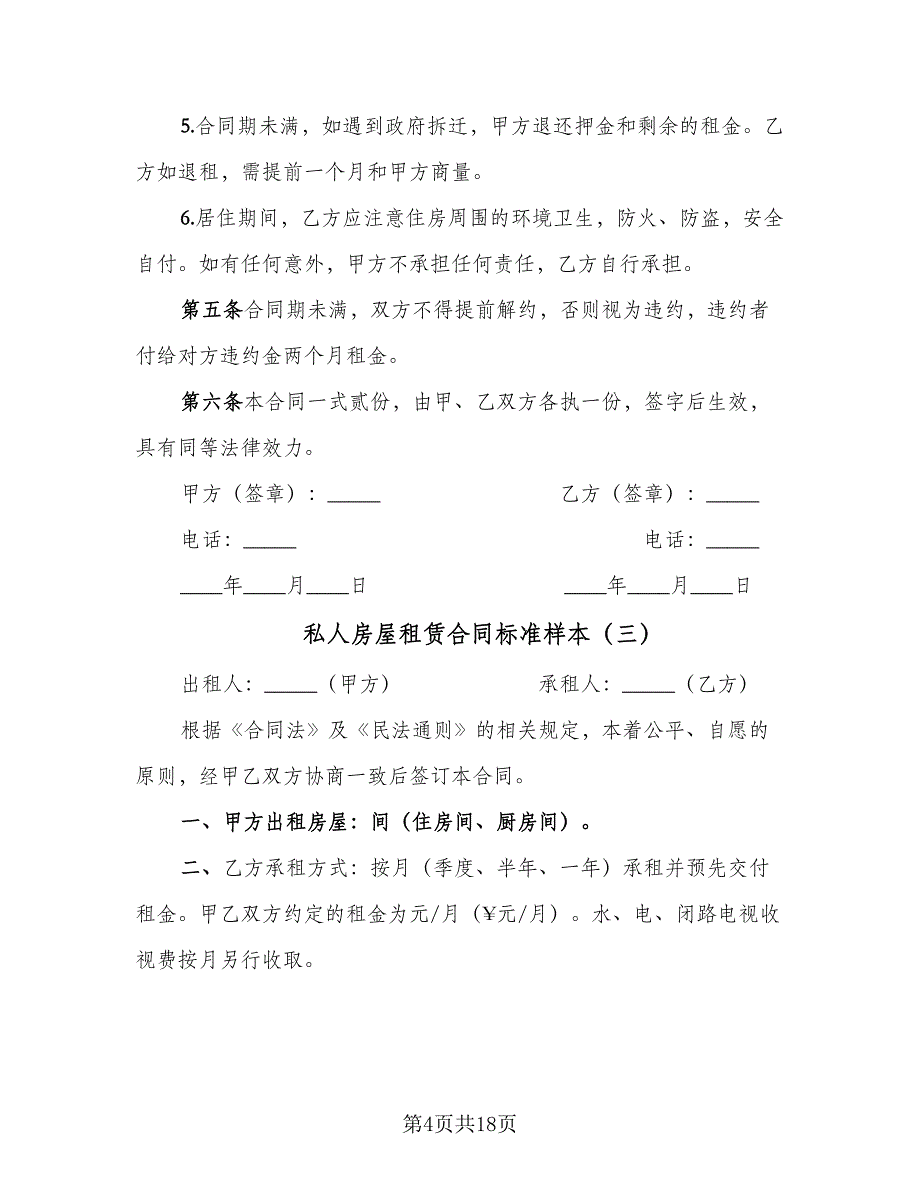 5.合同期未满，如遇到政府拆迁，甲方退还押金和剩余的租金。乙
方如退租，需提前一个月和甲方商量。
6.居住期间，乙方应注意住房周围的环境卫生，防火、防盗，安全
自付。如有任何意外，甲方不承担任何责任，乙方自行承担。
第五条合同期未满，双方不得提前解约，否则视为违约，违约者
付给对方违约金两个月租金。
第六条本合同一式贰份，由甲、乙双方各执一份，签字后生效，
具有同等法律效力。
甲方（签章）：_____ 乙方（签章）：_____
电话：_____ 电话：_____
____年____月____日 ____年____月____日
私人房屋租赁合同标准样本（三）
出租人：_____（甲方） 承租人：_____（乙方）
根据《合同法》及《民法通则》的相关规定，本着公平、自愿的
原则，经甲乙双方协商一致后签订本合同。
一、甲方出租房屋：间（住房间、厨房间）。
二、乙方承租方式：按月（季度、半年、一年）承租并预先交付
租金。甲乙双方约定的租金为元/月（¥元/月）。水、电、闭路电视收
视费按月另行收取。
第4页共18页